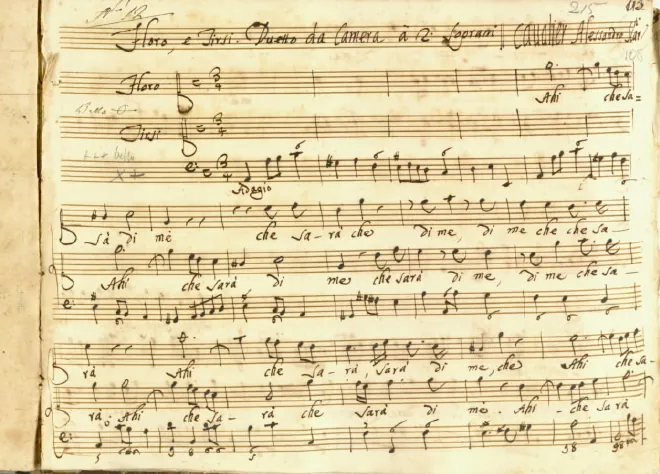 N.º 12
215
Floro, e Tirsi. Duetto da Camera à 2. Soprani Cavalier Alessandro
Floro
Ahi che sa=
Tirsi
Adagio
rà di me che sa-rà che di me, di me che che sa-
Ahi che sarà di me che sarà di me, di me che sa-
rà Ahi che sa-rà, sarà di me, che Ahi che sa-
rà Ahi che sa-rà che sarà di me. Ahi-che sarà